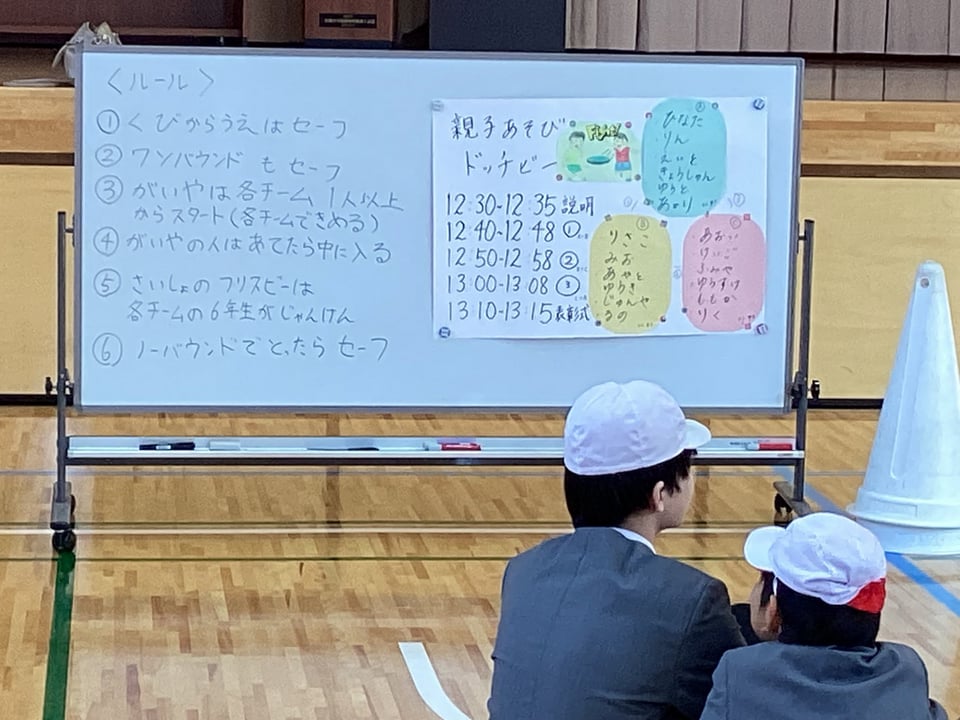 〈ルール〉
① くびからうえはセーフ
② ワンバウンドもセーフ
③ がいやは各チーム1人以上
からスタート(各チームできめる)
④ がいやの人はあてたら中に入る
⑤ さいしょのフリスビーは
各チームの6年生がじゃんけん
⑥ ノーバウンドでとったらセーフ
親子あそび
ドッチビー
12:30-12:35 説明
12:40-12:48 ①
12:50-12:58 ②
13:00-13:08 ③
13:10-13:15 表彰式
ひなた
りん
えいと
きょうしゃん
ゆうと
あかり
りさこ
みお
あやと
ゆうき
じゅんや
るの
ふみや
ゆうすけ
ももか
りく